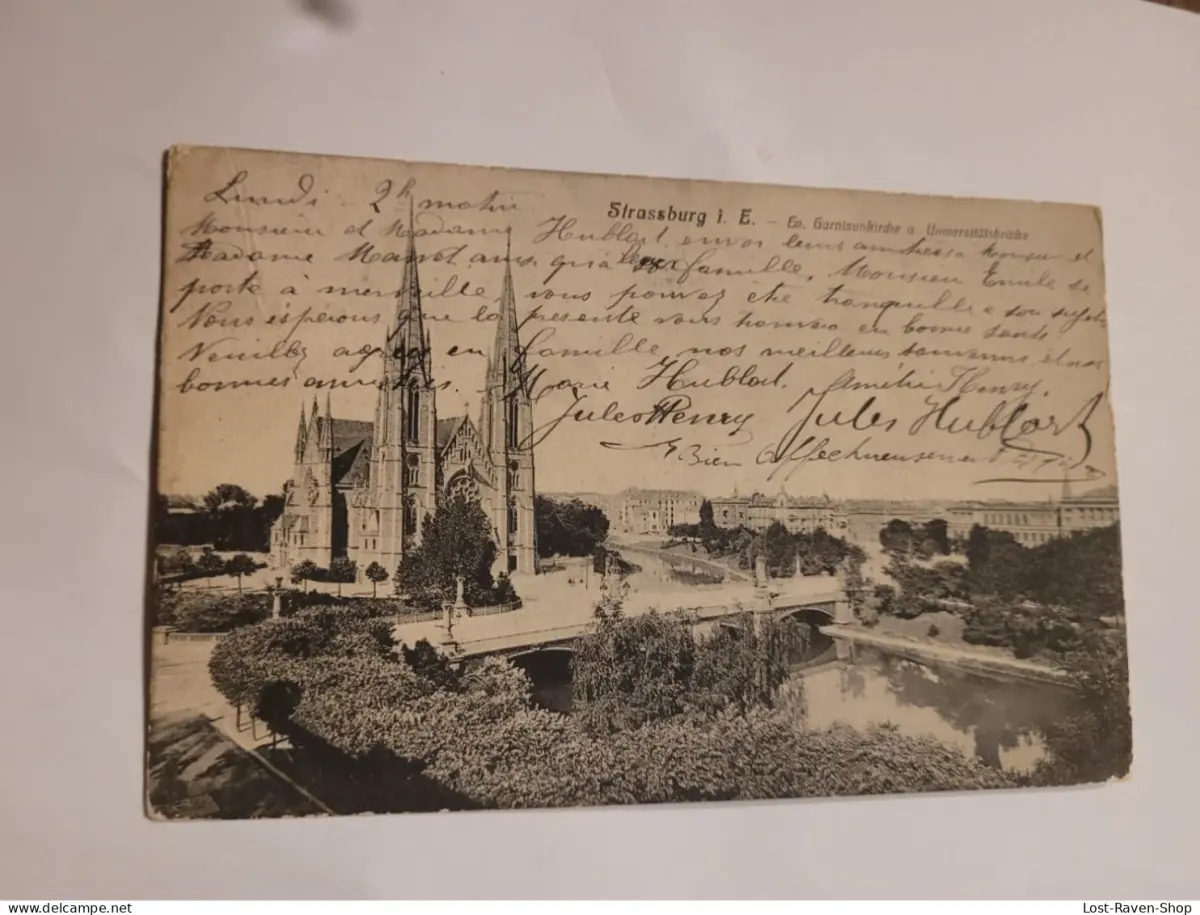 Lundi - 2h matin
Strassburg i. E. - Ev. Garnisonkirche u. Universitätsbrücke
Monsieur et Madame Hublot, envoi leurs amitiés à Monsieur et
Madame ainsi qu'à famille. Monsieur Emile se
porte à merveille vous pouvez être tranquille a son sujet.
Nous espérons que la présente vous trouvera en bonne santé.
Veuillez agréer en famille, nos meilleurs souvenirs et nos
bonnes amitiés. Marie Hublot. Amélie Henry
Jules Henry Jules Hublot
Bien affectueusement
Lost-Raven-Shop